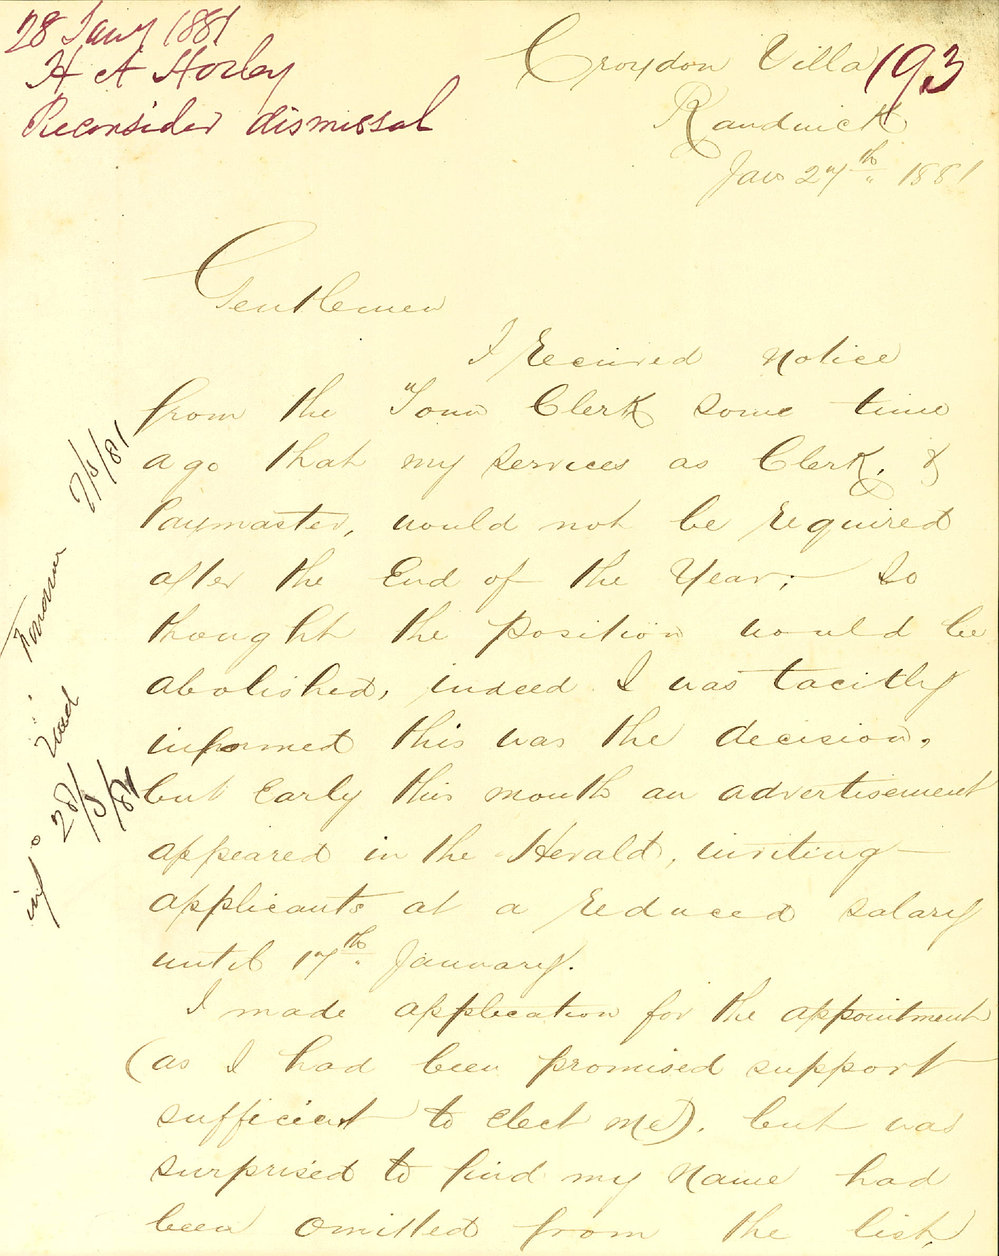 28 Jany 1881
H A Horley
Reconsider dismissal
193
Croydon Villa
Randwick
Jan 27th 1881
Gentlemen
I received notice
from the Town Clerk some time
ago that my services as Clerk, &
Paymaster, would not be required
after the End of the Year; So
thought the position would be
abolished, indeed I was tacitly
informed this was the decision,
but Early this month an advertisement
appeared in the Herald, inviting
applicants at a reduced salary
until 17th January.
I made application for the appointment
(as I had been promised support
sufficient to elect me). but was
surprised to find my Name had
been omitted from the list,
7/5/81
inf 28/5/81